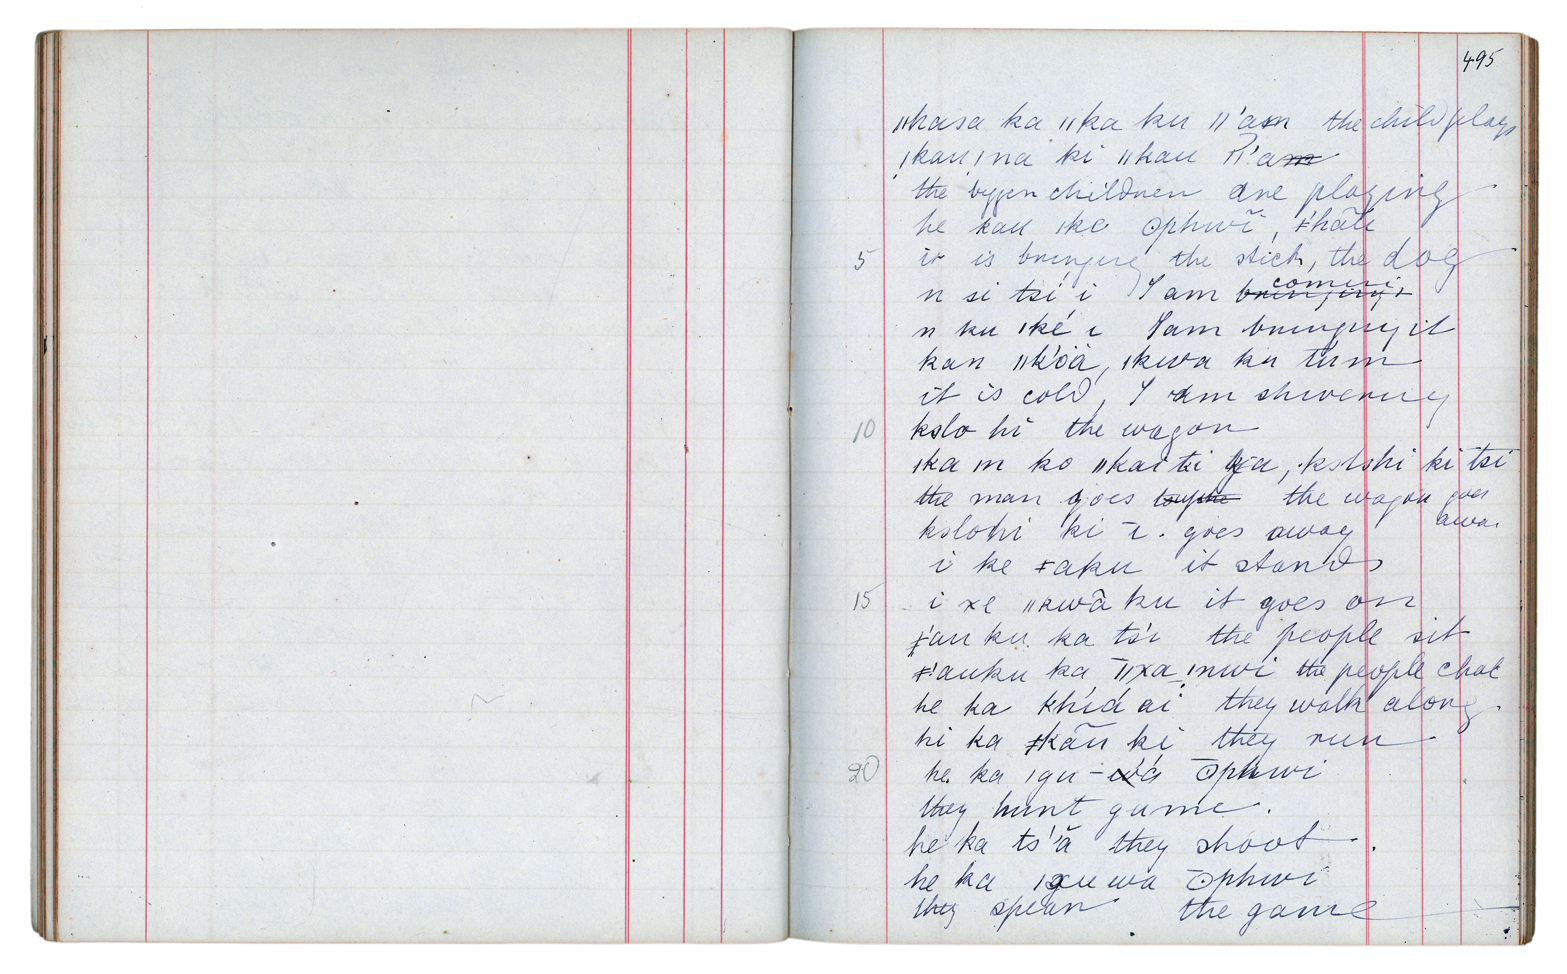 495
ǁkasa ka ǁka ku ǁ'am the child plays
ǃkau ǃna ki ǁkau
the bigger children are playing
he kau ǀke ʘphwĩ, ǂhãũ
5 it is bringing the stick, the dog
n si tsí i I am coming
n ku ǀké i I am bringing it
kan ǁk'öä, ǀkwa ku túm
it is cold, I am shivering
10 kslo hi the wagon
ǀka m ko ǁkai tsi, kslohi ki tsi
the man goes the wagon goes
away
kslohi ki ī. goes away
i ke ǂaku it stands
15 i xe ǁkwã ku it goes on
ǂ'au ku ka ts'i the people sit
ǂ'auku ka ǁxa ǃnwi the people chat
he ka khíd ai they walk along.
hi ka ǂkãũ ki they run
20 he ka ǀgu - ʘphwi
they hunt game.
he ka ts'ä they shoot.
he ka wa ʘphwi
they spear the game